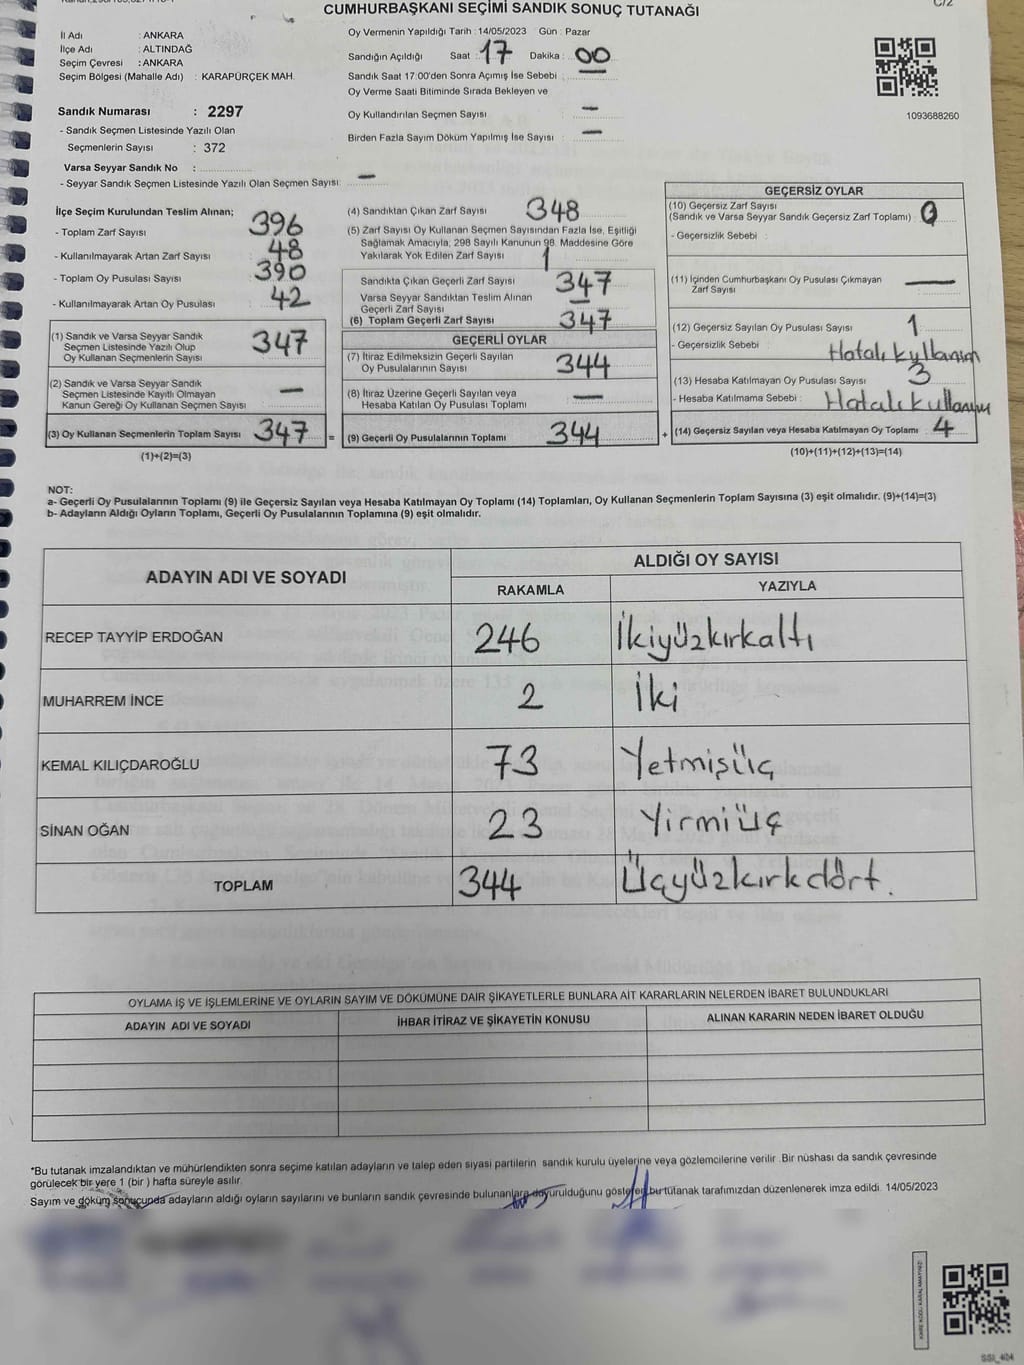 CUMHURBAŞKANI SEÇİMİ SANDIK SONUÇ TUTANAĞI
C/2
İl Adı : ANKARA
İlçe Adı : ALTINDAĞ
Seçim Çevresi : ANKARA
Seçim Bölgesi (Mahalle Adı) : KARAPÜRÇEK MAH.
Oy Vermenin Yapıldığı Tarih : 14/05/2023 Gün : Pazar
Sandığın Açıldığı Saat : 17 Dakika : 00
Sandık Saat 17:00'den Sonra Açımış İse Sebebi : —
Oy Verme Saati Bitiminde Sırada Bekleyen ve
Oy Kullandırılan Seçmen Sayısı : —
Birden Fazla Sayım Döküm Yapılmış İse Sayısı : —
1093688260
Sandık Numarası : 2297
- Sandık Seçmen Listesinde Yazılı Olan
Seçmenlerin Sayısı : 372
Varsa Seyyar Sandık No :
- Seyyar Sandık Seçmen Listesinde Yazılı Olan Seçmen Sayısı: —
İlçe Seçim Kurulundan Teslim Alınan;
- Toplam Zarf Sayısı : 396
- Kullanılmayarak Artan Zarf Sayısı : 48
- Toplam Oy Pusulası Sayısı : 390
- Kullanılmayarak Artan Oy Pusulası : 42
(1) Sandık ve Varsa Seyyar Sandık
Seçmen Listesinde Yazılı Olup
Oy Kullanan Seçmenlerin Sayısı 347
(2) Sandık ve Varsa Seyyar Sandık
Seçmen Listesinde Kayıtlı Olmayan
Kanun Gereği Oy Kullanan Seçmen Sayısı —
(3) Oy Kullanan Seçmenlerin Toplam Sayısı 347
(1)+(2)=(3)
(4) Sandıktan Çıkan Zarf Sayısı 348
(5) Zarf Sayısı Oy Kullanan Seçmen Sayısından Fazla İse, Eşitliği
Sağlamak Amacıyla, 298 Sayılı Kanunun 98. Maddesine Göre
Yakılarak Yok Edilen Zarf Sayısı 1
Sandıkta Çıkan Geçerli Zarf Sayısı 347
Varsa Seyyar Sandıktan Teslim Alınan
Geçerli Zarf Sayısı —
(6) Toplam Geçerli Zarf Sayısı 347
GEÇERLİ OYLAR
(7) İtiraz Edilmeksizin Geçerli Sayılan
Oy Pusulalarının Sayısı 344
(8) İtiraz Üzerine Geçerli Sayılan veya
Hesaba Katılan Oy Pusulası Toplamı —
= (9) Geçerli Oy Pusulalarının Toplamı 344
GEÇERSİZ OYLAR
(10) Geçersiz Zarf Sayısı
(Sandık ve Varsa Seyyar Sandık Geçersiz Zarf Toplamı) : 0
- Geçersizlik Sebebi :
(11) İçinden Cumhurbaşkanı Oy Pusulası Çıkmayan
Zarf Sayısı —
(12) Geçersiz Sayılan Oy Pusulası Sayısı : 1
- Geçersizlik Sebebi : Hatalı kullanım
(13) Hesaba Katılmayan Oy Pusulası Sayısı : 3
- Hesaba Katılmama Sebebi : Hatalı kullanım
+ (14) Geçersiz Sayılan veya Hesaba Katılmayan Oy Toplamı 4
(10)+(11)+(12)+(13)=(14)
NOT:
a- Geçerli Oy Pusulalarının Toplamı (9) ile Geçersiz Sayılan veya Hesaba Katılmayan Oy Toplamı (14) Toplamları, Oy Kullanan Seçmenlerin Toplam Sayısına (3) eşit olmalıdır. (9)+(14)=(3)
b- Adayların Aldığı Oyların Toplamı, Geçerli Oy Pusulalarının Toplamına (9) eşit olmalıdır.
ADAYIN ADI VE SOYADI
ALDIĞI OY SAYISI
RAKAMLA YAZIYLA
RECEP TAYYİP ERDOĞAN 246 İkiyüzkırkaltı
MUHARREM İNCE 2 İki
KEMAL KILIÇDAROĞLU 73 Yetmişüç
SİNAN OĞAN 23 Yirmiüç
TOPLAM 344 Üçyüzkırkdört.
OYLAMA İŞ VE İŞLEMLERİNE VE OYLARIN SAYIM VE DÖKÜMÜNE DAİR ŞİKAYETLERLE BUNLARA AİT KARARLARIN NELERDEN İBARET BULUNDUKLARI
ADAYIN ADI VE SOYADI İHBAR İTİRAZ VE ŞİKAYETİN KONUSU ALINAN KARARIN NEDEN İBARET OLDUĞU
*Bu tutanak imzalandıktan ve mühürlendikten sonra seçime katılan adayların ve talep eden siyasi partilerin sandık kurulu üyelerine veya gözlemcilerine verilir. Bir nüshası da sandık çevresinde
görülecek bir yere 1 (bir ) hafta süreyle asılır.
Sayım ve döküm sonucunda adayların aldığı oyların sayılarını ve bunların sandık çevresinde bulunanlara duyurulduğunu gösteren bu tutanak tarafımızdan düzenlenerek imza edildi. 14/05/2023
KARE KODU KARALAMAYINIZ!
SSI_404